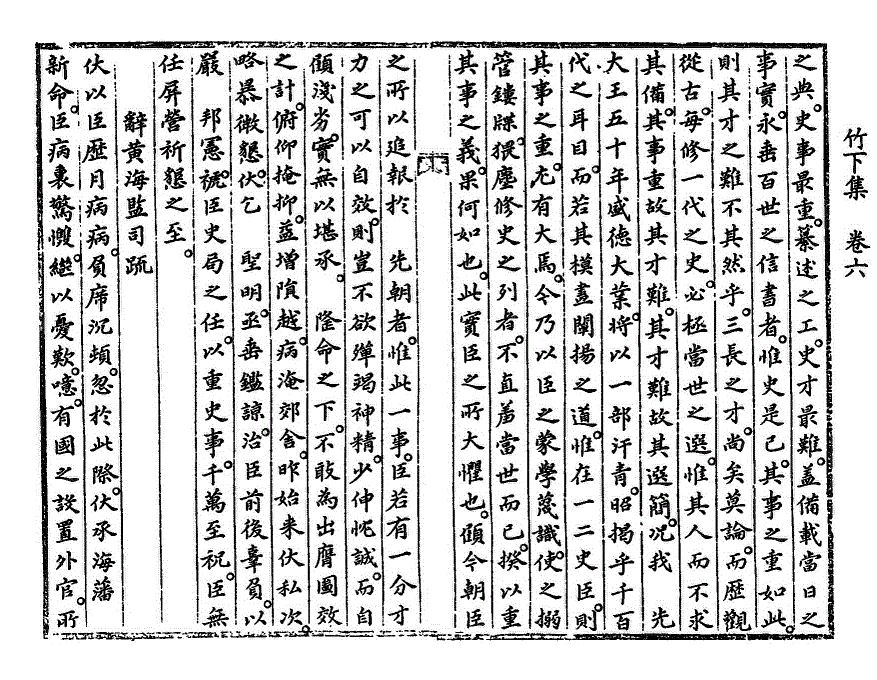 竹下集　卷六
之典。史事最重。纂述之工。史才最難。蓋備載當日之
事實。永垂百世之信書者。惟史是已。其事之重如此。
則其才之難不其然乎。三長之才。尚矣莫論。而歷觀
從古。每修一代之史。必極當世之選。惟其人而不求
其備。其事重故其才難。其才難故其選簡。况我　先
大王五十年盛德大業。將以一部汗青。昭揭乎千百
代之耳目。而若其摸畫闡揚之道。惟在一二史臣。則
其事之重。尤有大焉。今乃以臣之蒙學蔑識。使之搦
管鏤牒。猥塵修史之列者。不直羞當世而已。揆以重
其事之義。果何如也。此實臣之所大懼也。顧今朝臣
之所以追報於　先朝者。惟此一事。臣若有一分才
力之可以自效。則豈不欲殫竭神精。少伸悃誠。而自
顧淺劣。實無以堪承。　隆命之下。不敢為出膺圖效
之計。俯仰掩抑。益增隕越。病淹郊舍。昨始来伏私次。
略暴微懇。伏乞　聖明。亟垂鑑諒。治臣前後辜負。以
嚴　邦憲。褫臣史局之任。以重史事。千萬至祝。臣無
任屏營祈懇之至。
辭黃海監司疏
伏以臣歷月病病。負席沉頓。忽於此際。伏承海藩
新命。臣病裏驚惶。繼以憂歎。噫。有國之設置外官。所